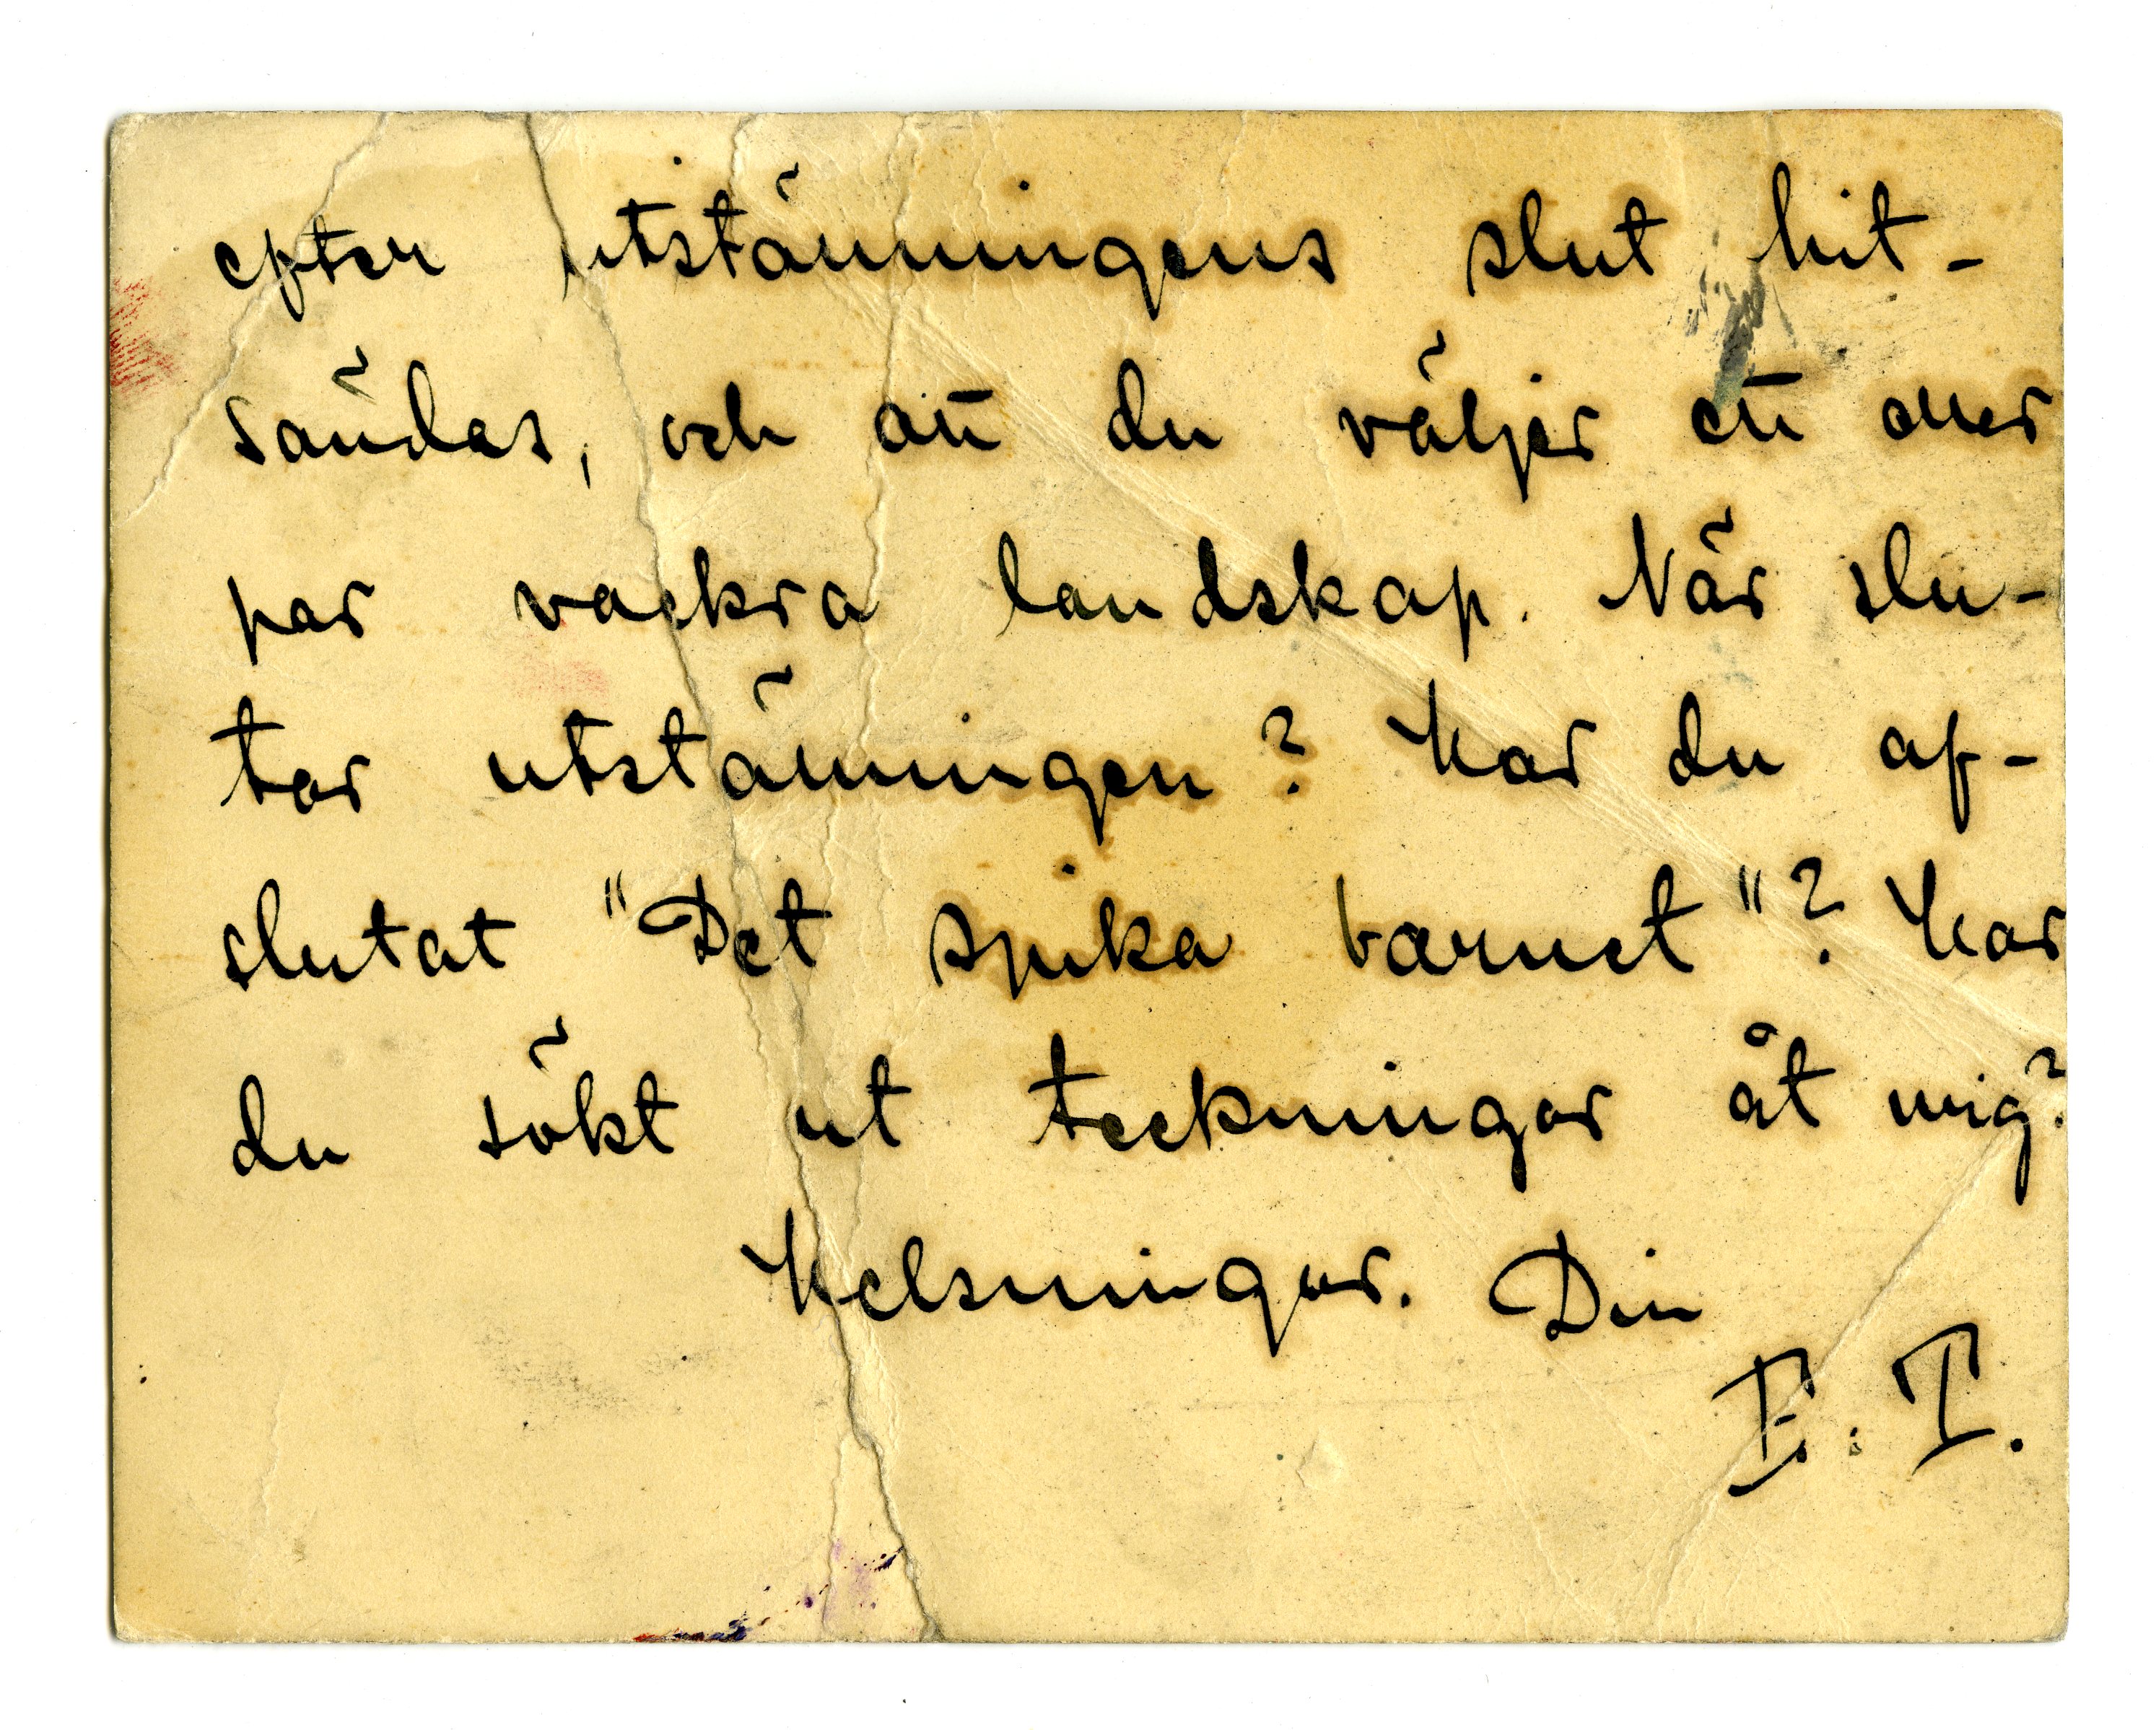 efter utställningens slut hit-
sändas, och att du väljer ett eller
par vackra landskap. När slu-
tar utställningen? Har du af-
slutat "Det spika barnet"? Har
du sökt ut teckningar åt mig?
Helsningar. Din
E. T.